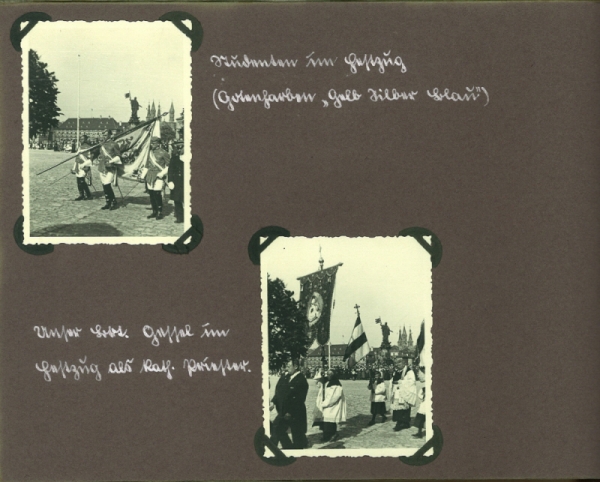 Studenten im Festzug
(Gotenfarben „Gelb Silber Blau“)
Unser Bbr. Gessel im
Festzug als kath. Priester.